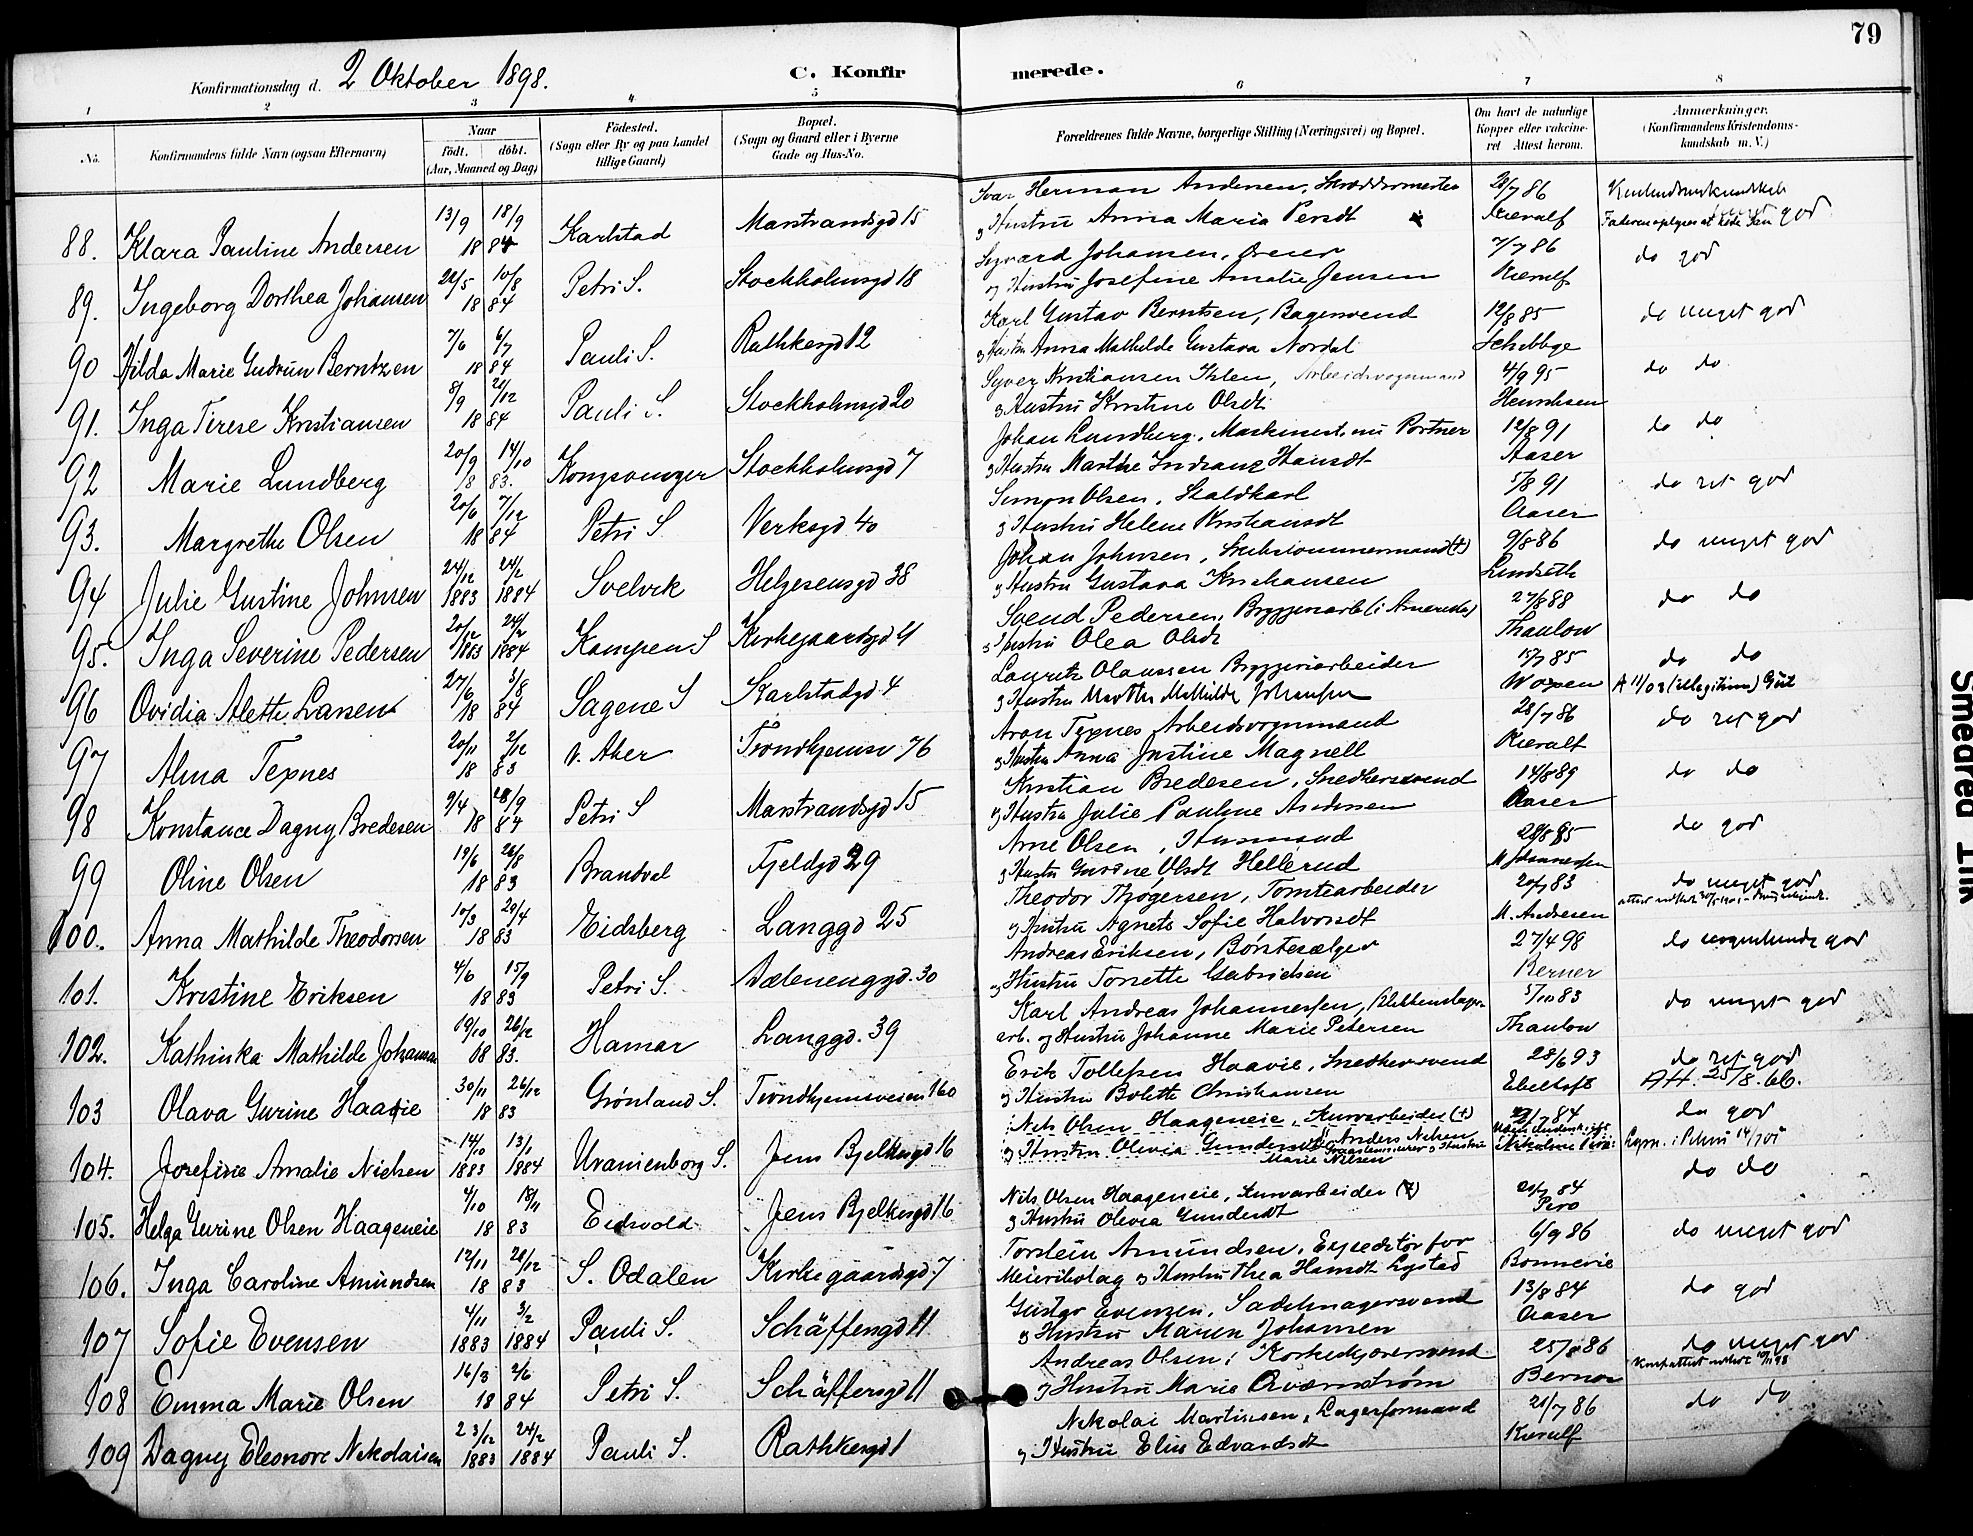 79
Konfirmationsdag d. 2 Oktober 1898.
C. Konfirmerede.
1 2 3 4 5 6 7 8
No.
Konfirmandens fulde Navn (ogsaa Efternavn)
Naar
Födt. döbt.
(Aar, Maaned og Dag)
Födested.
(Sogn eller By og paa Landet
tillige Gaard)
Bopæl.
(Sogn og Gaard eller i Byerne
Gade og Hus-No.
Forældrenes fulde Navne, borgerlige Stilling (Næringsvei) og Bopæl.
Om havt de naturlige
Kopper eller vakcine-
ret Attest herom.
Anmærkninger.
(Konfirmandens Kristendoms-
kundskab m. V.)
88. Klara Pauline Andersen 13/9 18/9 1884 Karlstad Marstrandsgd 15
Ivar Herman Andersen, Skræddermester
og Hustru Anna Maria Persdt
28/7 86 Kierulf
god
89. Ingeborg Dorthea Johansen 22/5 10/8 1884 Petri S. Stockholmsgd 18
Johansen, Dreier
og Hustru Josefine Amalie Jensen
7/7 86 Kierulf
do god
90 Hilda Marie Gudrun Berntzen 7/6 6/7 1884 Pauli S. Rathkesgd 12
Karl Gustav Berntsen, Bagersvend
og Hustru Anna Mathilde Gustava Nordal
12/8 85 Schibbye
do meget god
91. Inga Terese Kristiansen 8/9 21/12 1884 Pauli S. Stockholmsgd 20
Syver Kristiansen Islen, Arbeidsvognmand
og Hustru Kristine Olsdt
4/9 95 Henriksen
do do
92 Marie Lundberg 20/9 14/10 1883. Kongsvinger Stockholmsgd 7
Johan Lundberg, Maskinist, nu Portner
og Hustru Marthe Hansdt
12/8 91 Aaser
do do
93. Margrethe Olsen 20/6 7/12 1884 Petri S Verksgd 40
Simon Olsen, Staldkarl
og Hustru Helene Kristiansdt
5/8 91 Aaser
do ret god
94 Julie Gustine Johnsen 24/12 24/2 1883 1884 Svelvik Helgesensgd 38
Johan Johnsen, Skibstømmermand (+)
og Hustru Gustava Kristiansen
9/8 86 Lindseth
do meget god
95. Inga Severine Pedersen 20/12 24/2 1883 1884 Kampen S Kirkegaardsgd 41
Svend Pedersen, Bryggeriarb (i Amerika)
og Hustru Olea Olsdt
27/8 88 Thaulow
do do
96 Ovidia Alette Larsen 27/6 3/8 1884 Sagene S Karlstadgd. 4
Lauritz Olaussen Bryggeriarbeider
og Hustru Marthe Mathilde Johansen
15/7 85 Woxen
do do
97 Alma Texnes 20/11 2/12 1883 V. Aker Trondhjemsv 76
Aron Texnes Arbeidsvognmand
og Hustru Anna Justine Magnell
28/7 86 Kierulf
do ret god
98 Konstance Dagny Bredesen 9/4 28/9 1884 Petri S Marstrandsgd 15
Kristian Bredesen, Snedkersvend
og Hustru Julie Pauline Andersen
14/8 89 Aaser
do do
99 Oline Olsen 19/6 26/8 1883 Brandval Fjeldgd 29
Arne Olsen, Husmand
og Hustru Gurine Olsdt Hellerud
28/8 85 M Johannesen
do god
100. Anna Mathilde Theodorsen 10/3 29/4 1883 Eidsberg Langgd 25
Theodor Thøgersen, Tomtearbeider
og Hustru Agnete Sofie Halvorsdt
20/7 83 M. Andresen
do meget god
101. Kristine Eriksen 4/6 15/9 1883 Petri S. Dælenenggd. 30
Andreas Eriksen, Børstesælger
og Hustru Torsette Gabrielsen
27/4 98 Berner
do nogenlunde god
102. Kathinka Mathilde Johansen 19/10 26/12 1883. Hamar Langgd. 39
Karl Andreas Johannessen,
arb. og Hustru Johanne Marie Petersen
5/10 83 Thaulow
do meget god
103 Olava Gurine Haavie 30/11 26/12 1883 Grönland S. Trondhjemsveien 160
Erik Tollefsen Haavie, Snedkersvend
og Hustru Bolette Christiansen
28/6 93 Ebeltoft
do ret god
AH. 25/8. 66.
104. Josefine Amalie Nielsen 14/10 13/1 1883 1884 Uranienborg S. Jens Bjelkesgd 16
Nils Olsen Haageneie, Kurvarbeider (+)
og Hustru Olivia Gundersdt Anders Nilsen
Marie Nilsen
do god
105. Helga Gurine Olsen Haageneie 4/10 18/11 1883 Eidsvold Jens Bjelkesgd 16
Nils Olsen Haageneie, Kurvarbeider (+)
og Hustru Olivia Gundersdt
21/7 84 Piro
do do
106. Inga Caroline Amundsen 12/11 28/12 1883 S. Odalen Kirkegaardsgd. 7
Torstein Amundsen, Expeditør for
Meieribolag og Hustru Thea Hansdt Lystad
6/9 86 Bonnevie
do meget god
107 Sofie Evensen 4/11 3/2 1883 1884 Pauli S. Schäffersgd 11
Gustav Evensen, Sadelmagersvend
og Hustru Maren Johansen
13/8 84 Aaser
do god
108 Emma Marie Olsen 16/3 2/6 1884 Petri S. Schäffersgd 11
Andreas Olsen, Korkeskjærersvend
og Hustru Marie Qværnstrøm
25/8 86 Berner
do meget god
109 Dagny Eleonore Nikolaisen 23/12 24/2 1883 1884 Pauli S. Rathkesgd 1
Nikolai Martinsen, Lagerformand
og Hustru Elise Edvardsdt
28/7 86 Kierulf
do do
Smedred Ink